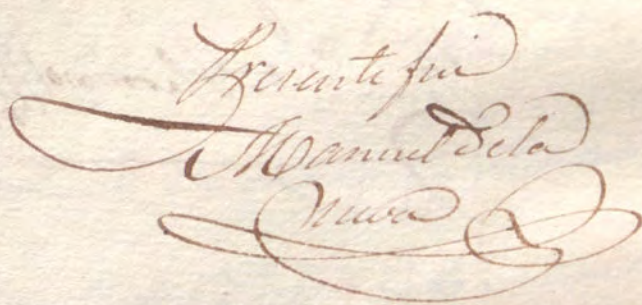 Presente fui
Manuel de la
Nueva